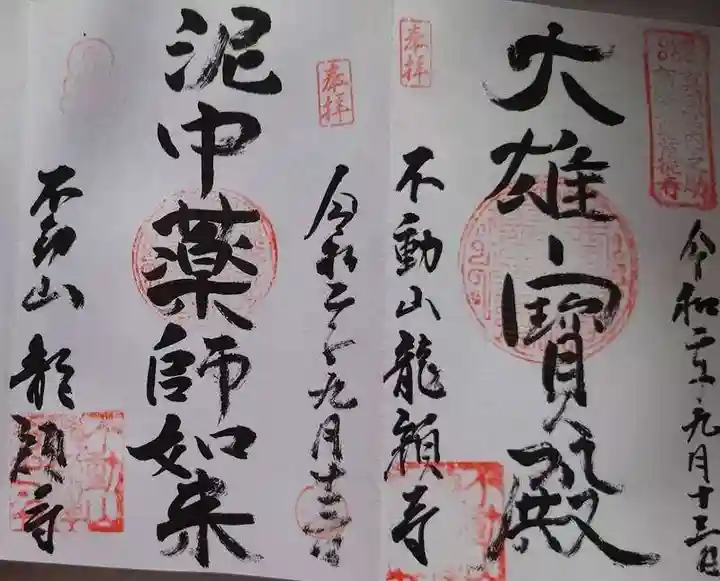 奉拝
大雄寶殿
不動山龍顔寺
令和二年九月十三日
不動山
奉拝
泥中薬師如来
不動山龍顔寺
令和二年九月十三日
不動山